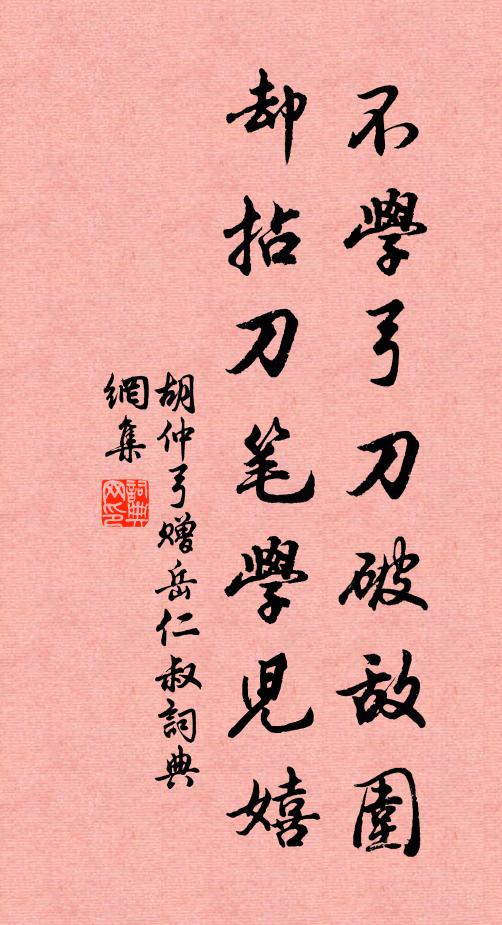 不學弓刀破敌圍
却拈刀笔學児嬉
胡仲弓赠岳仁叔詞典
網集
詞典
网印